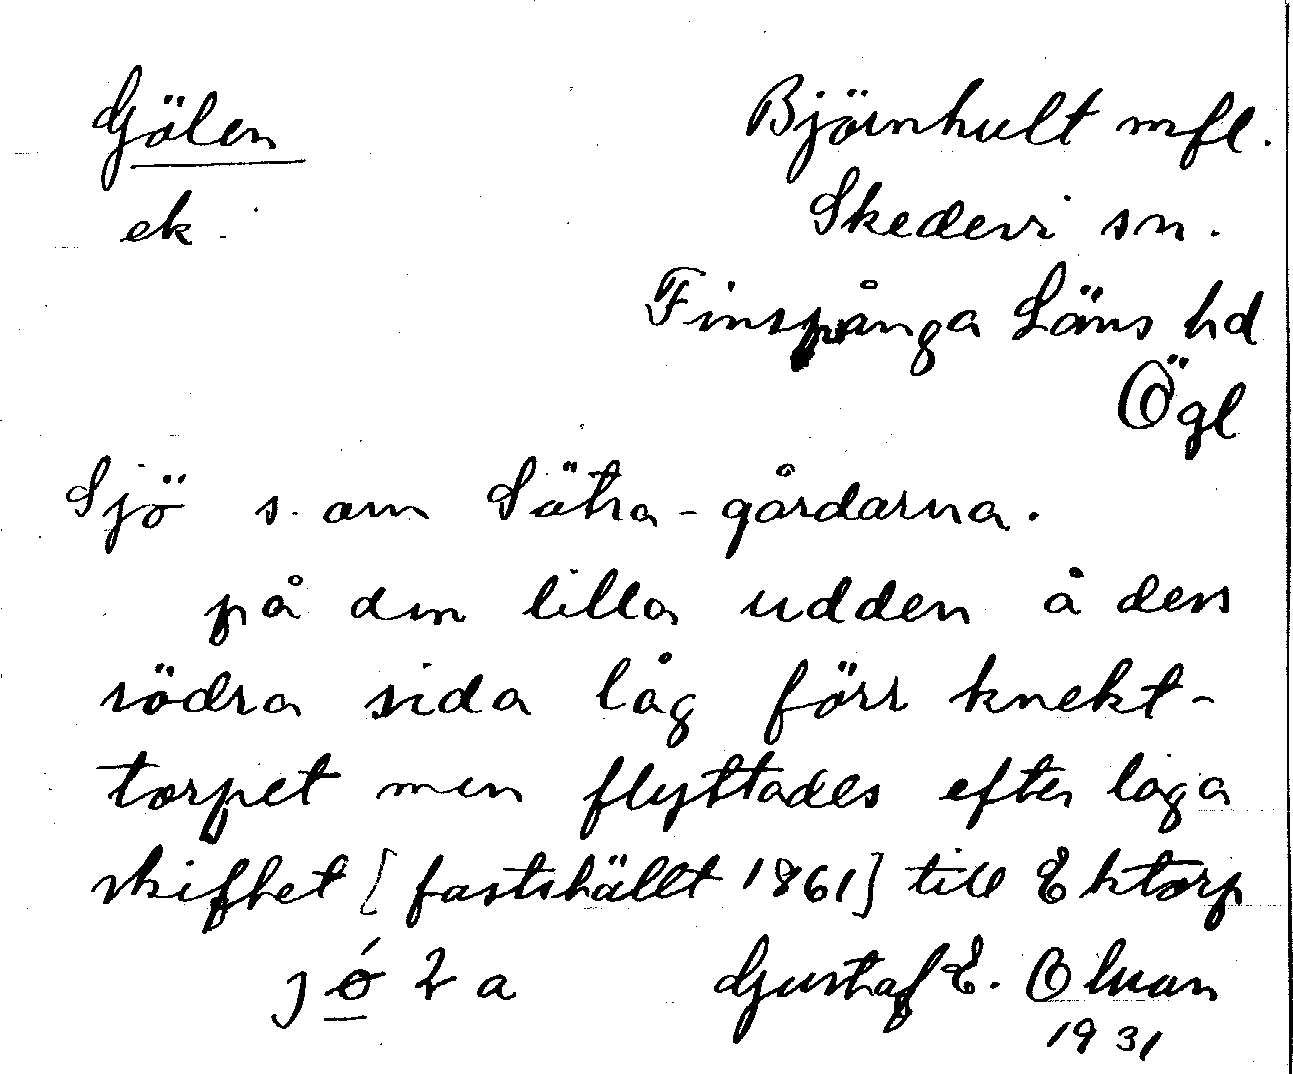 Gölen
Björnhult mfl.
ek.
Skedevi sn.
Finspånga Läns hd
Ögl
Sjö s. om Sätra-gårdarna.
på den lilla udden å dess
södra sida låg förr knekt-
torpet men flyttades efter laga
skiftet [fastställt 1861] till Ektorp
Gustaf E. Olson
1931